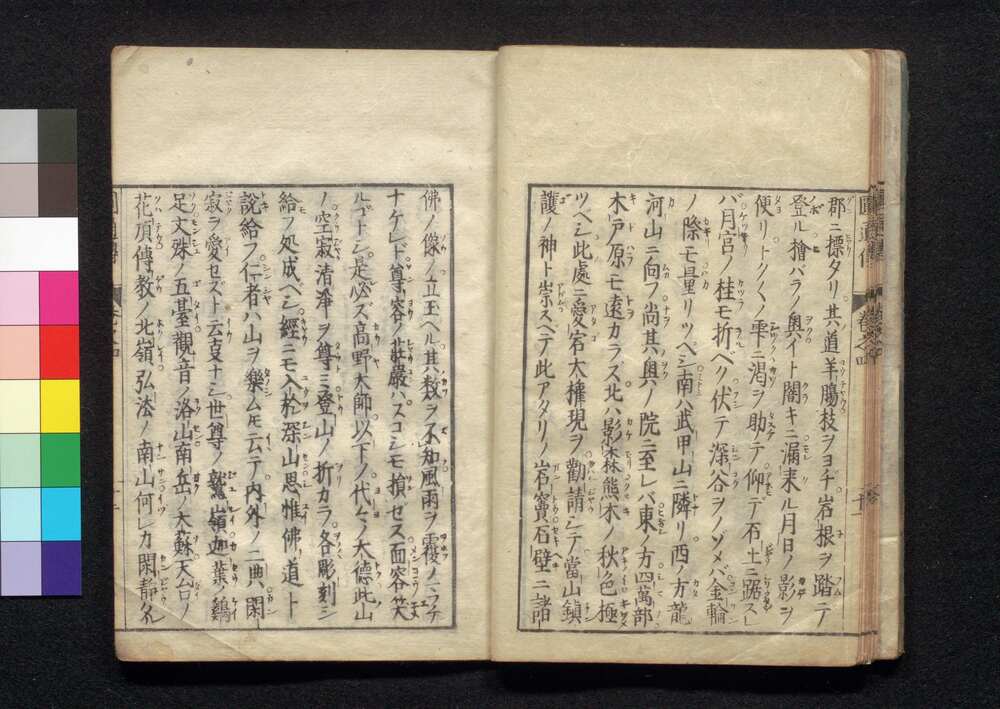 郡ニ標タリ其道羊膓枝ヲヨヂ岩根ヲ踏テ
登ル檜バラノ奥イト闇キニ漏来ル月日ノ影ヲ
便リトクヽノ雫ニ渇ヲ助テ仰テ石土ニ踞スレ
バ月宮ノ桂モ折ベク伏テ深谷ヲノゾメバ金輪
ノ際モ量リツベシ南ハ武甲山ニ隣リ西ノ方龍
河山ニ向フ尚其奥ノ院ニ至レバ東ノ方四萬部
木戸原モ遠カラス北ハ影森熊木ノ秋色極
ツベシ此處ニ愛宕大権現ヲ勸請シテ當山鎮
護ノ神ト崇スベテ此アタリノ岩竇石壁ニ諸
佛ノ像ノ立玉ヘル其数ヲ不知風雨ヲ覆ノミヲチ
ナケレド尊容ノ荘嚴ハスコシモ損セス面容笑
ルゴトシ是必ズ高野大師以下ノ代々ノ大徳此山
ノ空寂清浄ヲ尊ミ登山ノ折カラ各彫刻シ
給フ処成ベシ經ニモ入於深山思惟佛道ト
說給フ仁者ハ山ヲ樂ムモ云テ内外ノ二典閑
寂ヲ愛セズト云支ナシ世尊ノ鷲嶺迦葉ノ鶏
足文殊ノ五䑓觀音ノ洛山南岳ノ大蘇天台ノ
花頂傳教ノ北嶺弘法ノ南山何レカ閑静ナレ